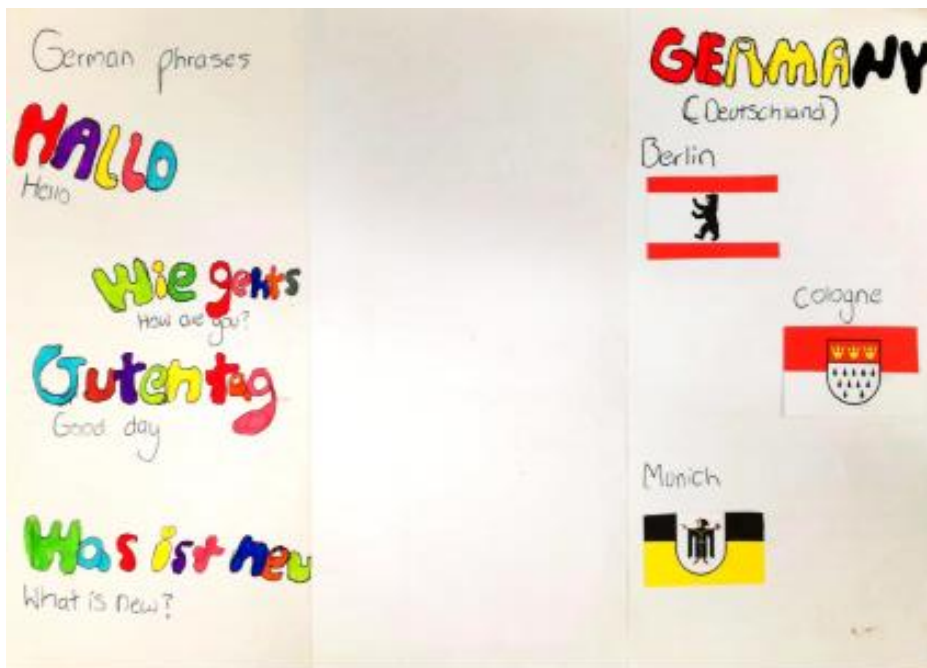 German phrases
HALLO
Hello
Wie gehts
How are you?
Guten tag
Good day
Was ist neu
What is new?
GERMANY
(Deutschland)
Berlin
Cologne
Munich